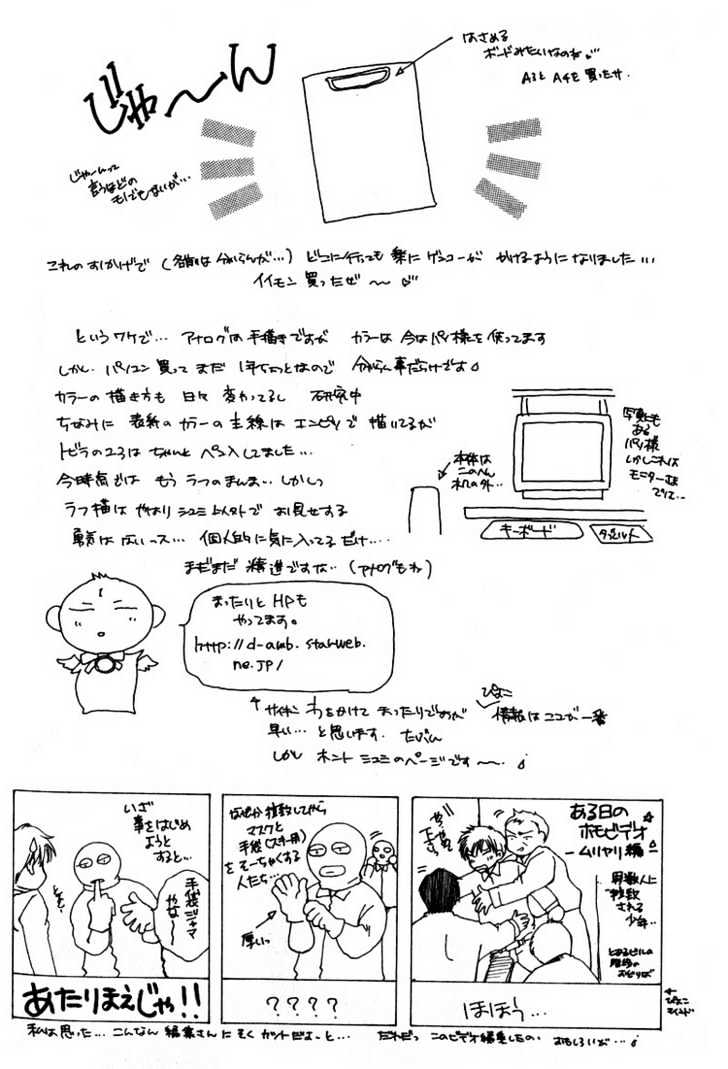 じゃ〜ん
はさめる
ボードみたいなのね
A3と A4を 買ったサ.
じゃ〜んって
言うほどの
モノでもないが…
これのおかげで (名前は 分からんが…) どこに行っても 楽に ゲンコーが かけるように なりました…
イイモン 買ったぜ 〜
というワケで… アナログは 手描きですが カラーは 今はパソ様を 使ってます
しかし. パソコン 買って まだ 1年ちょっとなので 分からん事だらけです
カラーの 描き方も 日々 変わってるし 研究中
ちなみに 表紙の カラーの 主線は エンピツで 描いてるが
トビラの2コは ちゃんと ペン入してました…
今時点では もう ラフのまんま… しかしっ
ラフ描は やはり シュミ 以外で お見せする
勇気は ないっス… 個人的に 気に入ってるだけ….
まだまだ 精進ですな… (アナログもね)
写真にも
ある
パソ様
しかしこれは
モニターさま
でして…
本体は
このへん
机の外…
キーボード
タブレット
まったりと HPも
やってます。
http://d-amb.starweb.
ne.jp/
サイキン 輪をかけて まったりですが
ぴよこ
情報は ココが 一番
早い… と思います. たぶん
しかし ホント シュミのページです 〜.
ある日の
ホモビデオ
ームリヤリ編ー
男数人に
複数
される
少年…
とあるビルの
階段の
おどりば
ほほう…
ぴよこ
なぜか 複数してから
マスクと
手袋(スキー用)
を そーちゃくする
人たち…
厚いっ
????
いざ
事をはじめ
ようと
すると…
手袋ジャマ
やな〜
あたりまえじゃ!!
私は思った… こんなん 編集さんに そく カットだよーと… だれだっ このビデオ編集したの. おもしろいが…